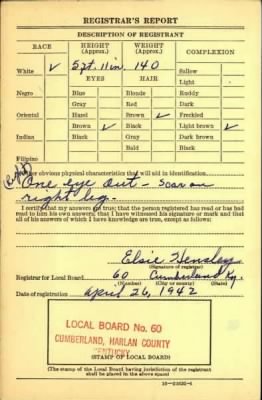 REGISTRAR'S REPORT
DESCRIPTION OF REGISTRANT
RACE
HEIGHT
(Approx.)
WEIGHT
(Approx.)
COMPLEXION
White ✓
5 ft. 11 in.
140
Sallow
EYES
HAIR
Light
Negro
Blue
Blonde
Ruddy
Gray
Red
Dark
Oriental
Hazel
Brown ✓
Freckled
Brown ✓
Black
Light brown ✓
Indian
Black
Gray
Dark brown
Bald
Black
Filipino
other obvious physical characteristics that will aid in identification
One eye out - Scar on
right leg.
I certify that my answers are true; that the person registered has read or has had
read to him his own answers; that I have witnessed his signature or mark and that
all of his answers of which I have knowledge are true, except as follows:
Elsie Hensley
(Signature of registrar)
Registrar for Local Board 60 Cumberland Ky.
(Number) (City or county) (State)
Date of registration April 26, 1942
LOCAL BOARD No. 60
CUMBERLAND, HARLAN COUNTY
KENTUCKY
(STAMP OF LOCAL BOARD)
(The stamp of the Local Board having jurisdiction of the registrant
shall be placed in the above space)